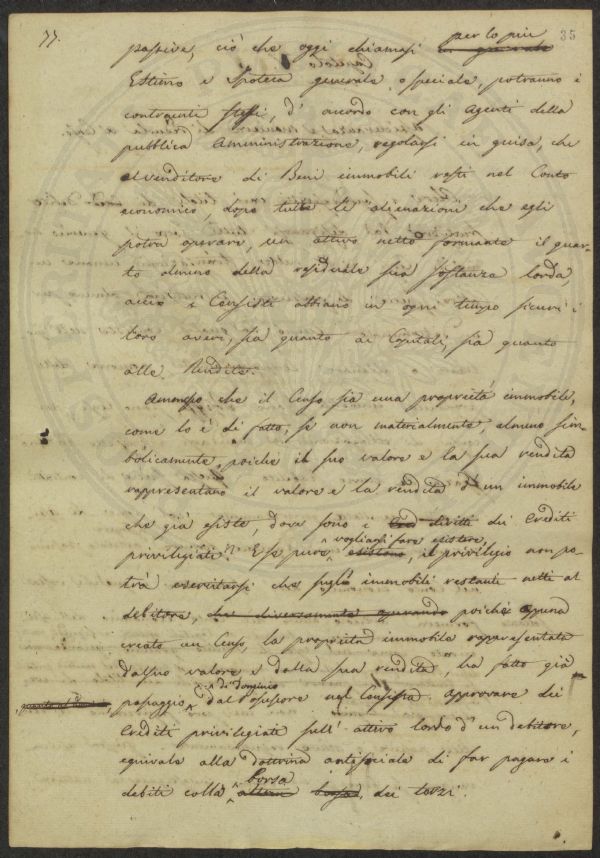 77.
35
passive, ciò che oggi chiamasi per lo più in generale
Catastro
Estimo e Ipoteca generale, o speciale, potranno i
contraenti stessi, d'accordo con gli Agenti della
pubblica Amministrazione, regolarsi in guisa, che
il venditore di Beni immobili resti nel Conto
economico, dopo tutte le alienazioni che egli
potrà operare, un attivo netto formante il quar-
to almeno della residuale sua sostanza lorda,
acciò i Censisti abbiano in ogni tempo sicuri i
loro averi, sia quanto ai Capitali, sia quanto
alle Rendite.
Ammesso che il Censo sia una proprietà immobile,
come lo è di fatto, se non materialmente, almeno sim-
bolicamente, poichè il suo valore e la sua rendita
rappresentano il valore e la rendita d'un immobile
che già esiste, dove sono i diritti dei Crediti
privilegiati? E se pure vogliansi fare esistere,
esistono, il privilegio non po-
trà esercitarsi che sugli immobili restanti netti al
debitore, che diversamente operando poichè appena
creato un Censo, la proprietà immobile rappresentata
dal suo valore e dalla sua rendita, ha fatto già
passaggio di dominio dal possessore nel Censista. Approvare dei
Crediti privilegiati sull'attivo lordo d'un debitore,
equivale alla dottrina antisociale di far pagare i
debiti colla borsa dei terzi.